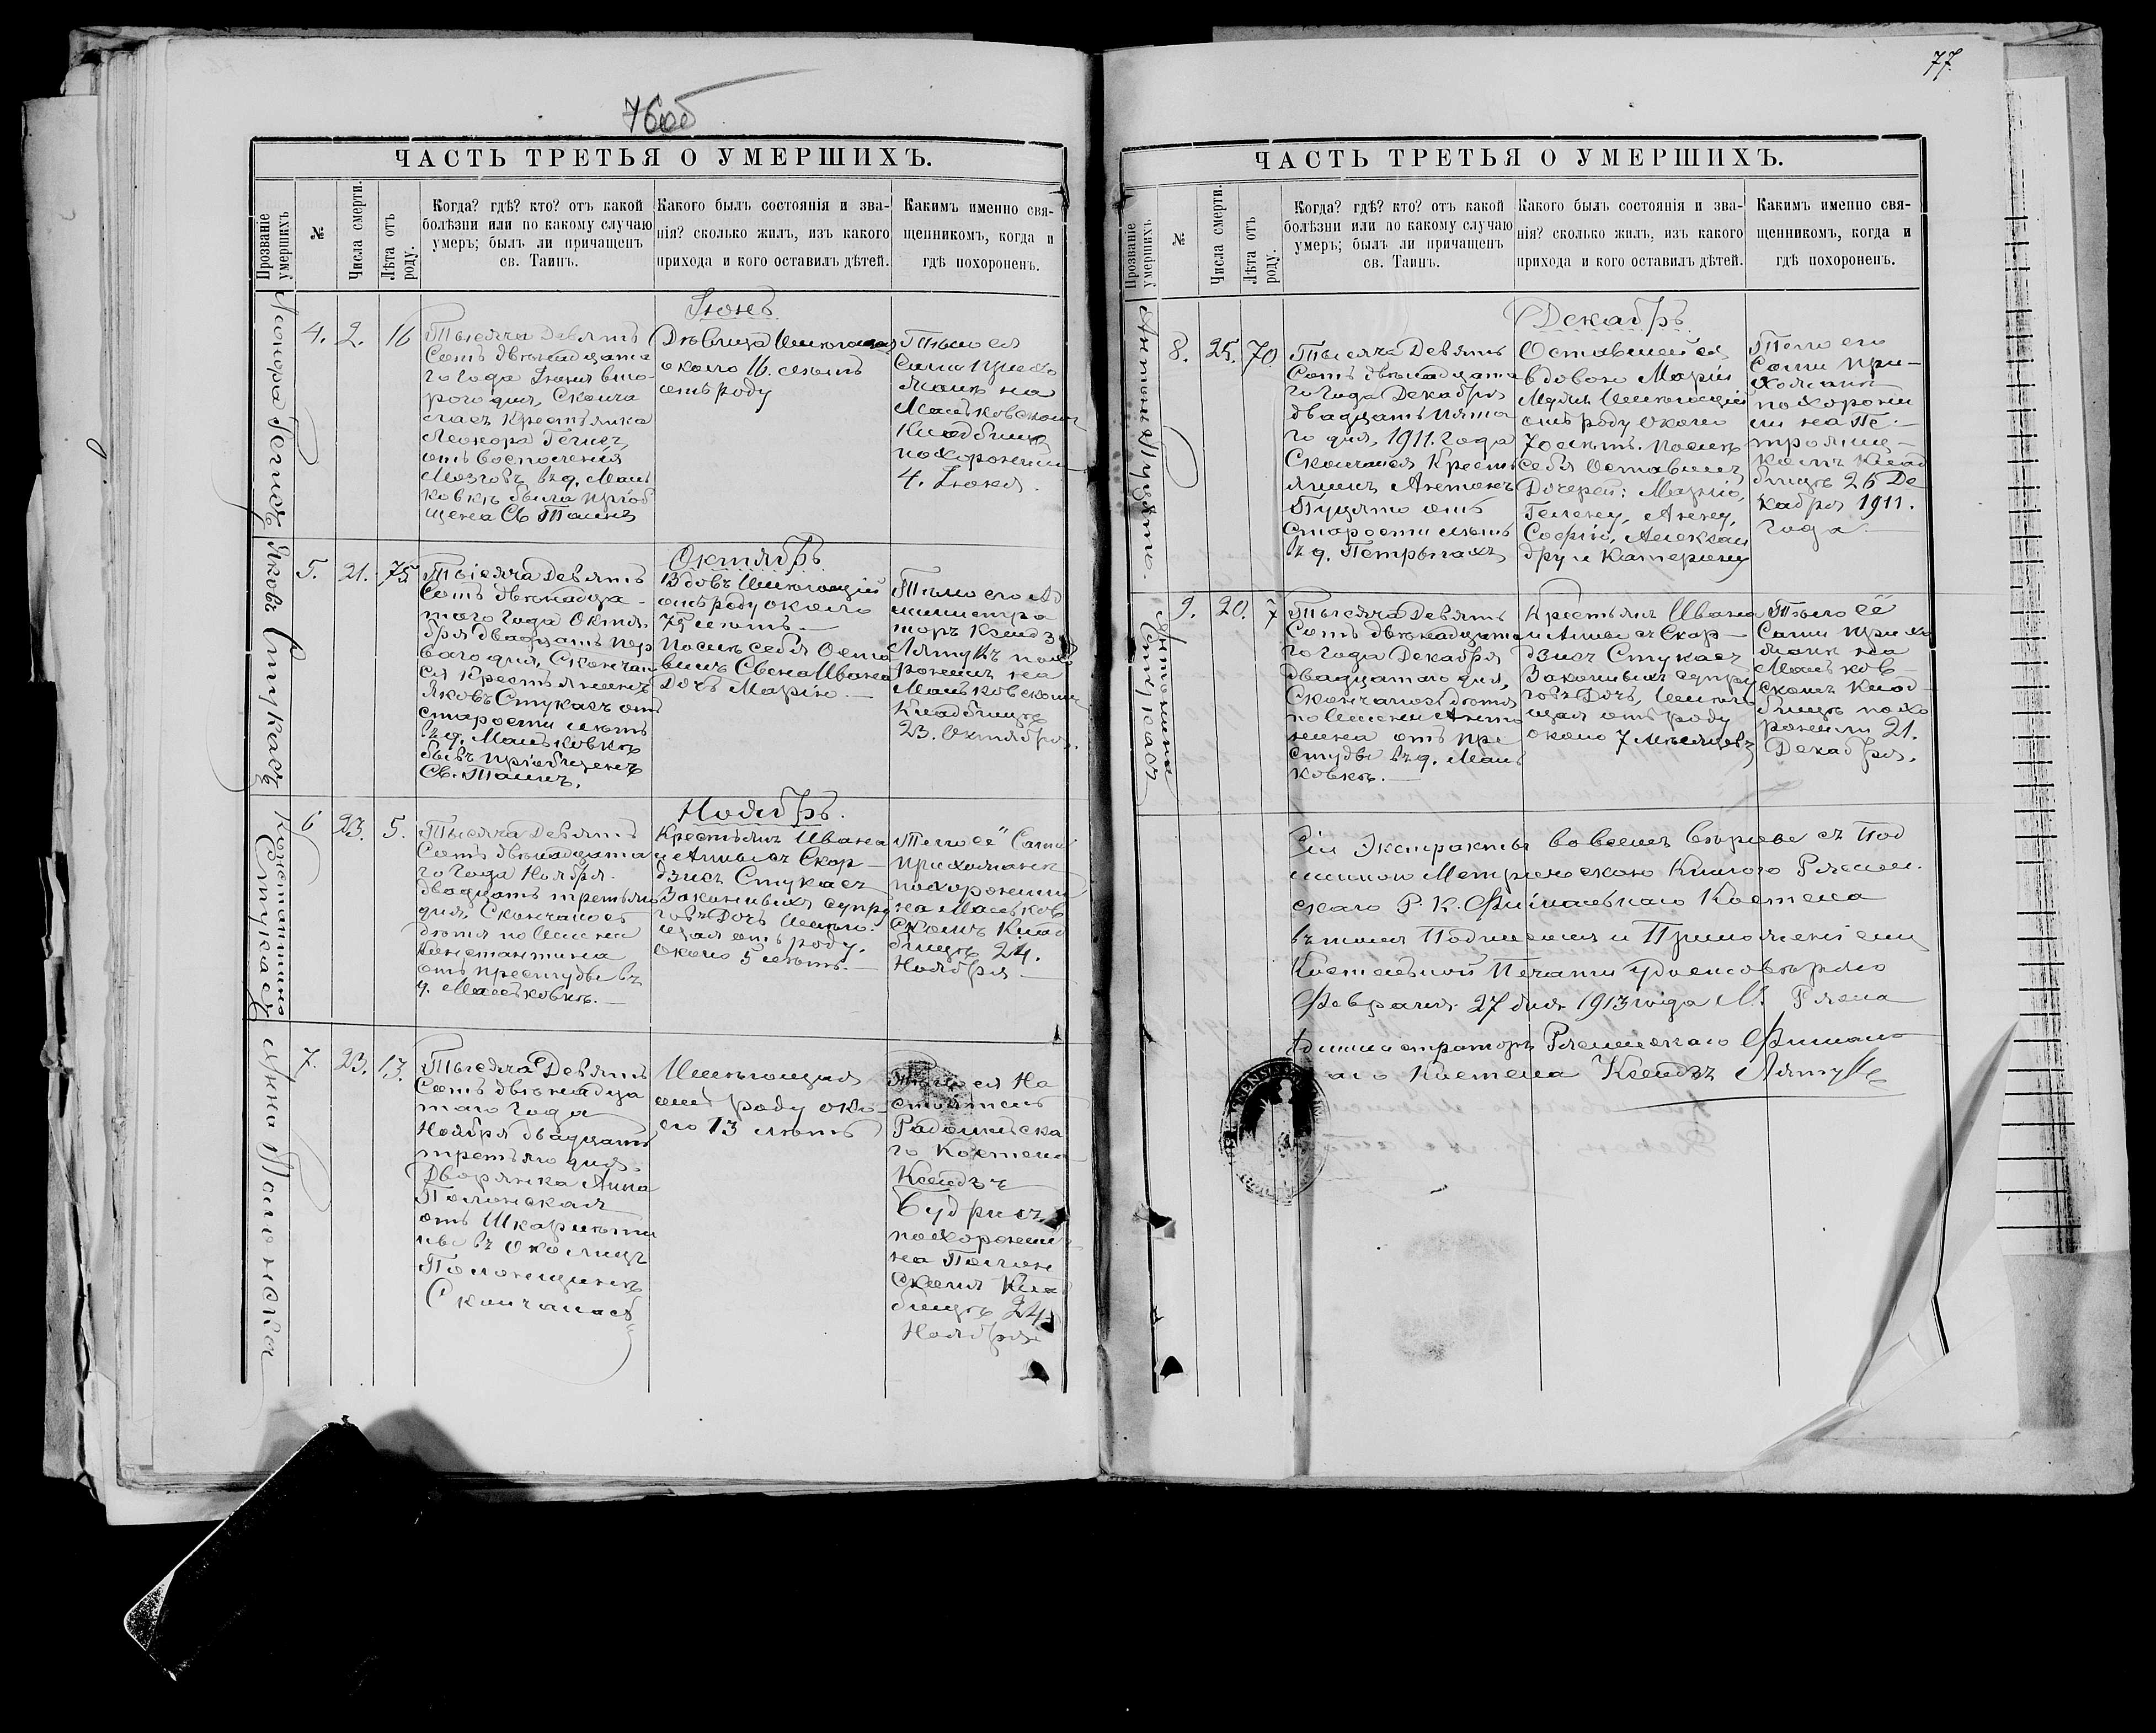 76об
ЧАСТЬ ТРЕТЬЯ О УМЕРШИХЪ.
Прозваніе умершихъ
№
Числа смерти.
Лѣта отъ роду.
Когда? гдѣ? кто? отъ какой
болѣзни или по какому случаю
умеръ; былъ ли причащенъ
св. Таинъ.
Какого былъ состоянія и зва-
нія? сколько жилъ, изъ какого
прихода и кого оставилъ дѣтей.
Какимъ именно свя-
щенникомъ, когда и
гдѣ похороненъ.
Іюнь
4.
2.
16
Тысяча Девять
Сотъ двѣнадцата
го Года Іюня вто
рого дня, Сконча
лась Крестьянка
Леонора
отъ воспаленія
Мозговъ въ д. Мань
ковкѣ была пріоб
щена Св Таинъ
Дѣвица Имѣющая
около 16. лѣтъ
отъ роду
Тѣло ея
Сами прихо
жане на
Маньковскомъ
Кладбищѣ
похоронили
4. Іюня.
Октябрь
Яковъ Стукасъ
5.
21.
75
Тысяча Девять
Сотъ двѣнадца-
таго Года Октя
бря двадцать пер
ваго дня, Скончал
ся Крестьянинъ
Яковъ Стукасъ отъ
старости лѣтъ
въ д. Маньковкѣ
бывъ пріобщенъ
Св. Таинъ.
Вдовъ Имѣющій
отъ роду около
75 лѣтъ.—
Послѣ себя Оста
вилъ Сына Ивана
Дочь Марію.—
Тѣло его Ад
министра
торъ Ксендз
Лятукъ похо
ронилъ на
Маньковскомъ
Кладбищѣ
23. Октября.
Ноябрь.
Константина
Стукасъ
6
23.
5.
Тысяча Девять
Сотъ двѣнадцата
го Года Ноября
двадцать третьяго
дня, Скончалось
дитя по Имени
Константина
отъ простуды въ
д. Маньковкѣ.—
Крестьянъ Ивана
и Анны съ Скор—
дзисъ Стукасъ
Законныхъ супру
говъ Дочь Имѣю-
щая отъ роду
около 5 лѣтъ.—
Тѣло её Сами
прихожане
похоронили
на Маньков
скомъ Клад
бищѣ 24.
Ноября—
Анна Полонская
7.
23.
13.
Тысяча Девять
Сотъ двѣнадца
таго Года
Ноября двадцать
третьяго дня
Дворянка Анна
Полонская
отъ Шкарлати
ны въ Околицѣ
Полонщинѣ
Скончалась
Имѣющая
отъ роду око-
ло 13 лѣтъ
Тѣло ея На
стоятель
го Костела
Ксендзъ
Будрисъ
похоронилъ
на Полон
скомъ Клад
бищѣ 24
Ноября
77.
ЧАСТЬ ТРЕТЬЯ О УМЕРШИХЪ.
Прозваніе умершихъ
№
Числа смерти.
Лѣта отъ роду.
Когда? гдѣ? кто? отъ какой
болѣзни или по какому случаю
умеръ; былъ ли причащенъ
св. Таинъ.
Какого былъ состоянія и зва-
нія? сколько жилъ, изъ какого
прихода и кого оставилъ дѣтей.
Какимъ именно свя-
щенникомъ, когда и
гдѣ похороненъ.
Декабрь
8.
25.
70
Тысяча Девять
Сотъ двѣнадцата
го Года Декабря
двадцать пята
го дня, 1911. Года
Скончался Кресть
янинъ Антонъ
Пуцято отъ
старости лѣтъ
въ д. Петрыгахъ
Оставшейся
вдовою Маріи
Мужъ Имѣющій
отъ роду около
70 лѣтъ. послѣ
себя Оставилъ
Дочерей: Марію,
Гелену, Анну,
Софію, Алексан
дру и Катерину
Тѣло его
Сами при-
хожане
похорони
ли на Пе-
кладбищѣ 26 Де
кабря 1911.
Года—
Антонина
Стукасъ
9.
20.
7
Тысяча Девять
Сотъ двѣнадцата
го Года Декабря
двадцатого дня,
Скончалось дитя
по Имени Анто
нина отъ про
студы въ д. Мань
ковкѣ.—
Крестьянъ Ивана
и Анны съ Скор—
дзисъ Стукасъ
Законныхъ супру
говъ Дочь, Имѣю
щая отъ роду
около 7 мѣсяцевъ
Тѣло её
Сами прихо
жане на
Маньков—
скомъ Клад-
бищѣ похо
ронили 21.
Декабря.
Сіи Экстракты во всемъ вѣрны съ Под
линною Метрическою Книгою Рясен-
скаго Р. К. Филіальнаго Костела
въ томъ Подписомъ и Приложеніемъ
Костельной Печати удостовѣряю
Февраля 27 дня 1913 года М. Рясна
Администраторъ Рясненскаго Филіаль
наго Костела Ксендзъ Лятукъ